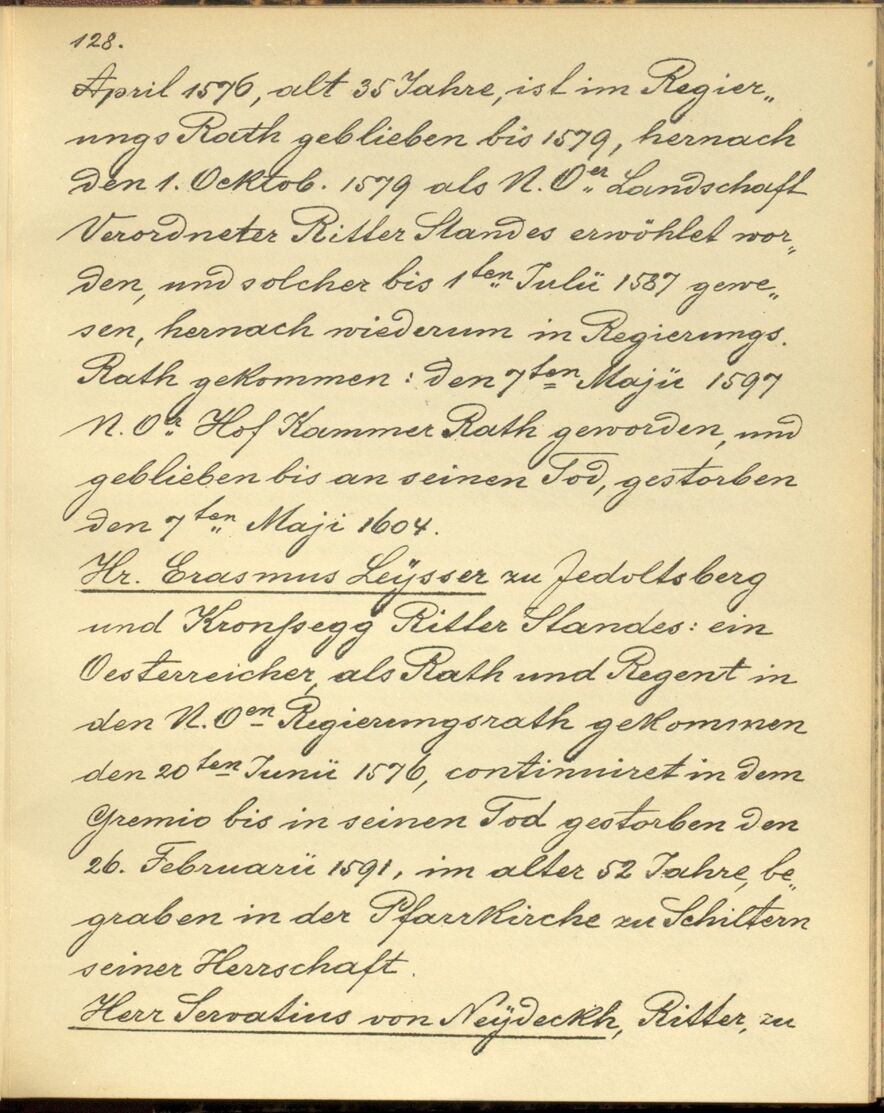 128.
April 1576, alt 35 Jahre, ist im Regier„
ungs Rath geblieben bis 1579, hernach
den 1. Ocktob. 1579 als N. Oer Landschaft
Verordneter Ritter Standes erwöhlet wor„
den, und solcher bis 1ten Julii 1587 gewe„
sen, hernach wiederum in Regierungs.
Rath gekommen: den 7ten Majii 1597
N. Or Hof Kammer Rath geworden, und
geblieben bis an seinen Tod, gestorben
den 7ten Maji 1604.
Hr. Erasmus Leÿsser zu Jedoltsberg
und Kronfsegg Ritter Standes: ein
Oesterreicher, als Rath und Regent in
den N. Oen Regierungsrath gekommen
den 20ten Junii 1576, continuiret in dem
Gremio bis in seinen Tod gestorben den
26. Februarii 1591, im alter 52 Jahre, be„
graben in der Pfarrkirche zu Schiltern
seiner Herrschaft.
Herr Servatius von Neÿdeckh, Ritter, zu